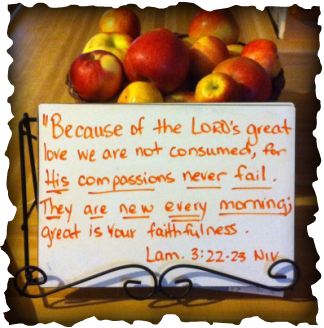 "Because of the LORD's great
love we are not consumed, for
His compassions never fail.
They are new every morning;
great is your faithfulness.
Lam. 3:22-23 NIV